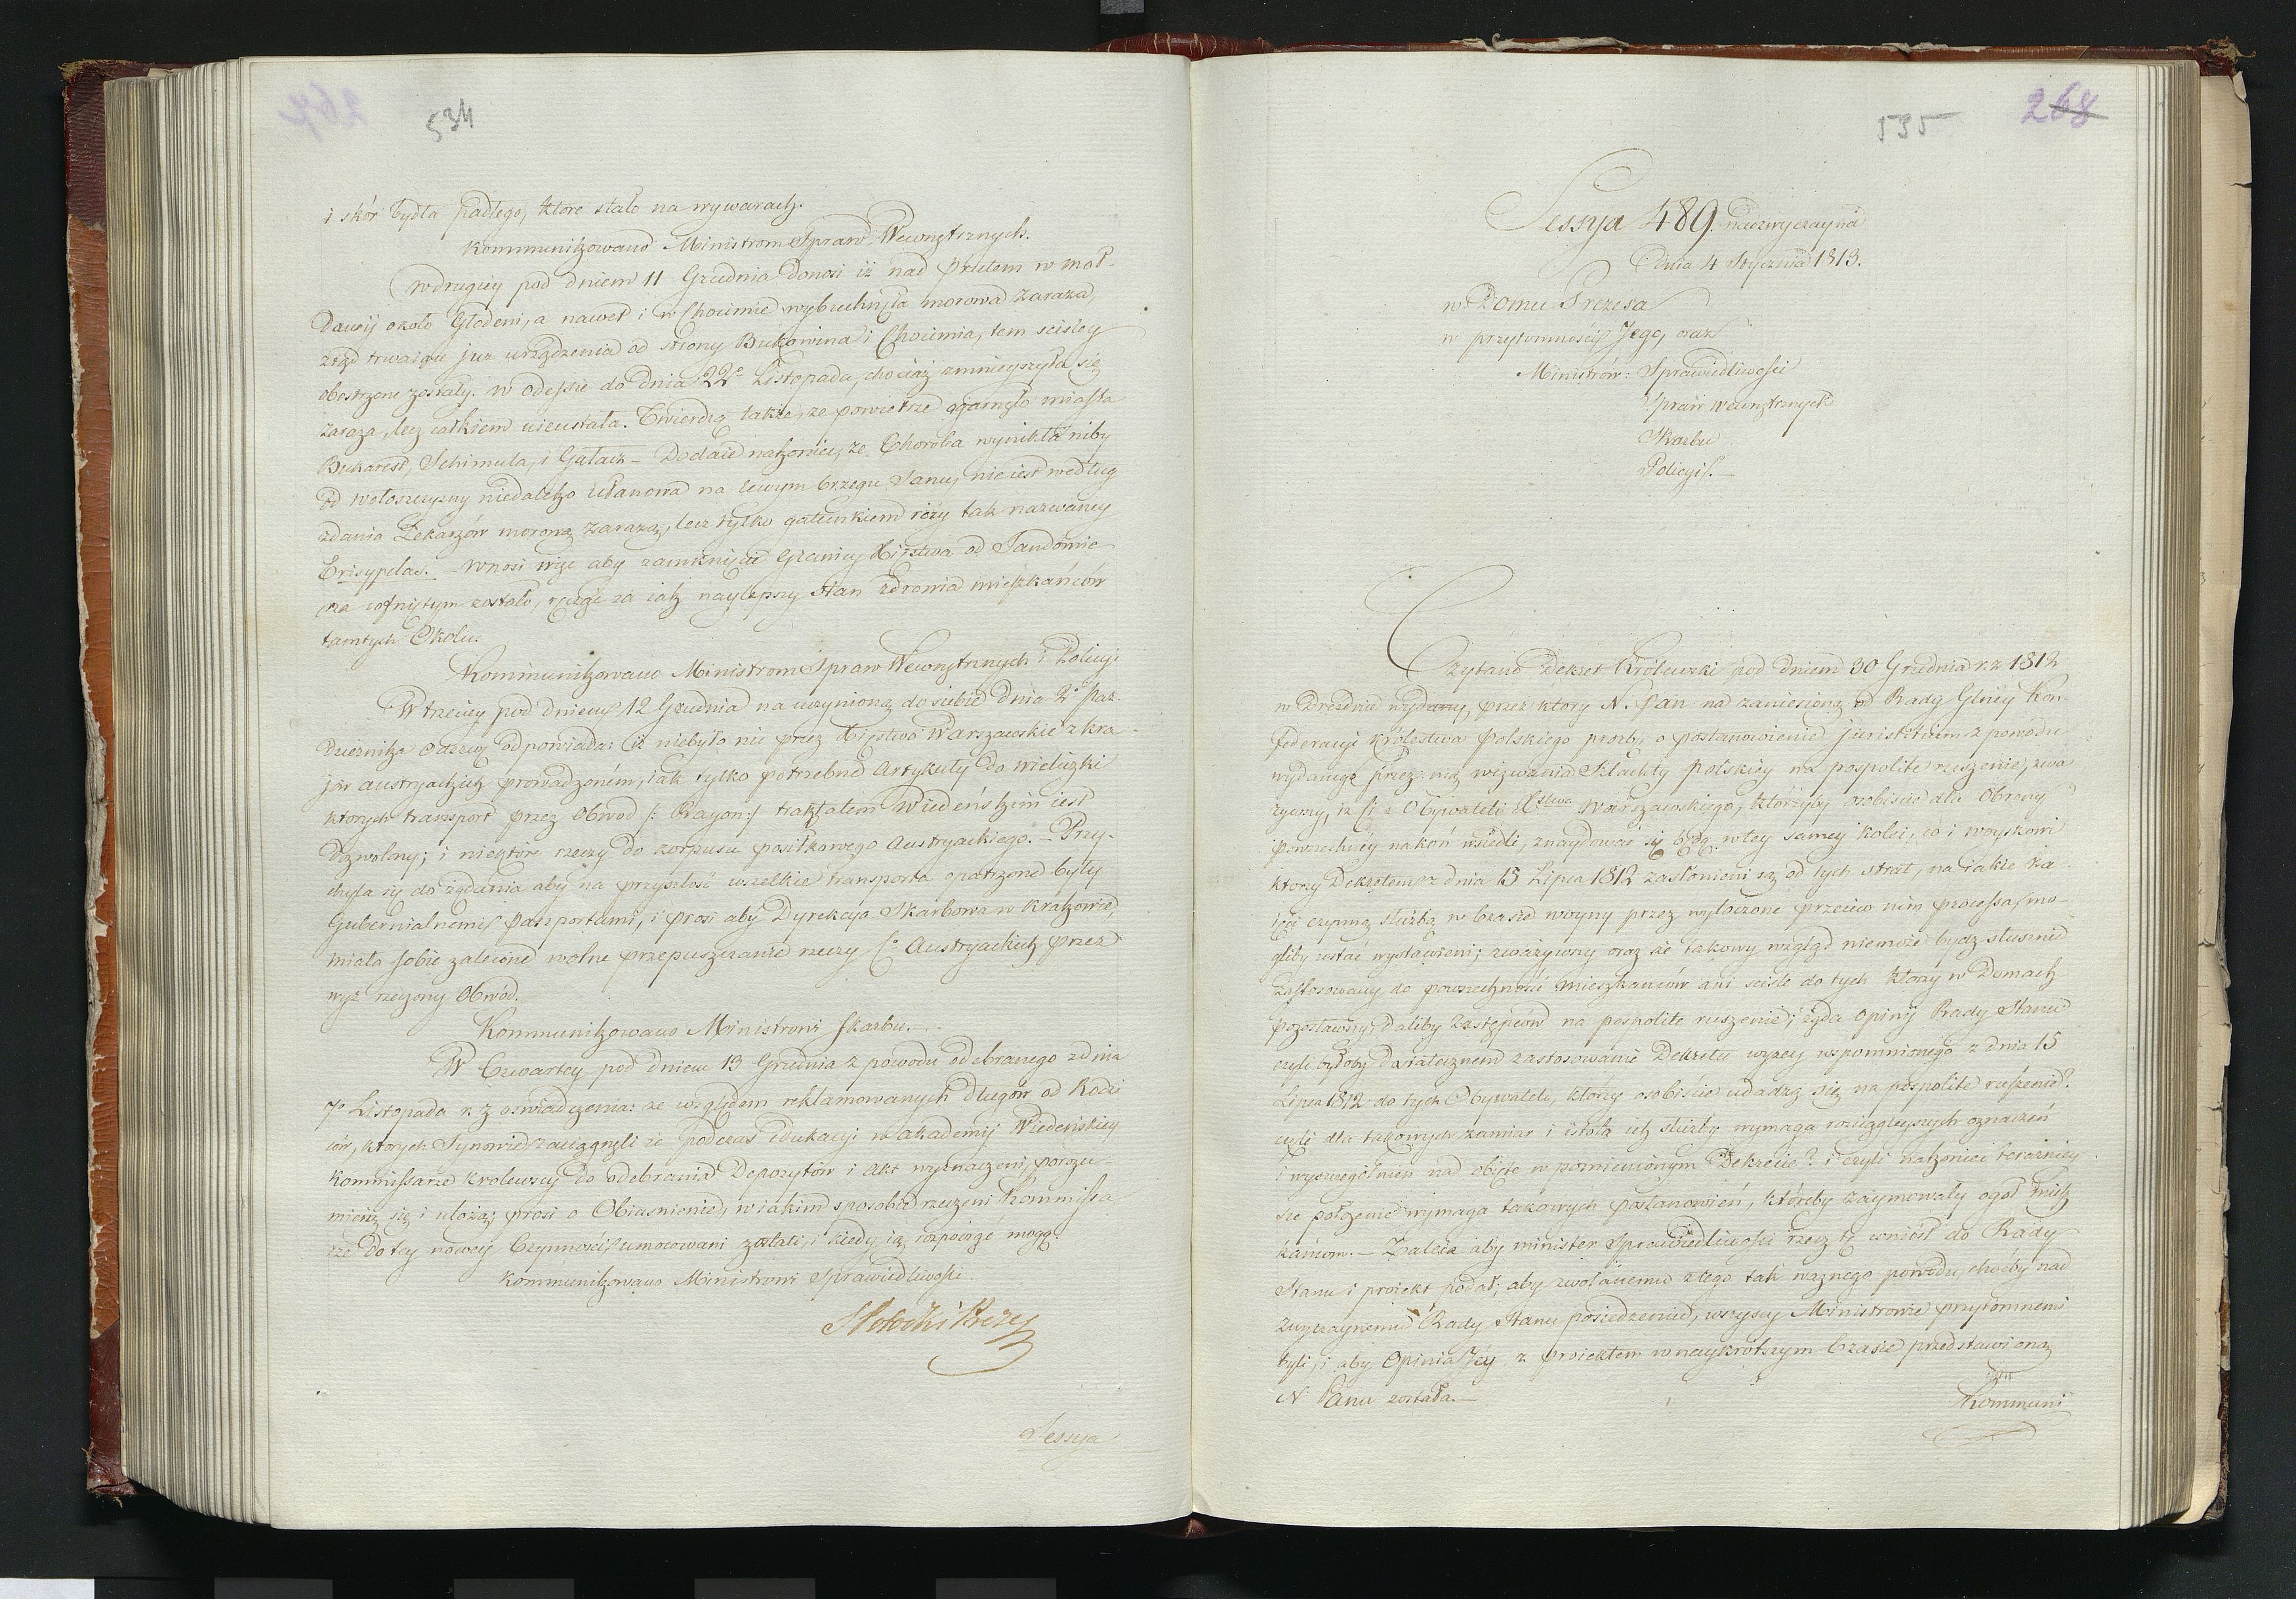 534
i skór bydła padłego, które stało na wywarach.
Kommunikowano Ministrom Spraw Wewnętrznych.
W drugiey pod dniem 11 Grudnia donosi iż nad Prutem w Moł-
dawij około Głodeni, a nawet i w Chocimie wybuchnęła morowa zaraza,
zkąd trwaiące iuż urządzenia od strony Bukowina i Chocimia, tem sciśley
obostrzone zostały. W Odessie do dnia 22º Listopada, chociaż zmnieyszyła się
zaraza, lecz całkiem nieustała. Twierdzą także, że powietrze ogarnęło miasta
Bukarest, Schimula, i Galacz – Dodaie nakoniec, że Choroba wynikła niby
od Wołoszczyzny niedaleko Ulanowa na lewym brzegu Sanu, nie iest według
zdania Lekarzów morową zarazą, lecz tylko gatunkiem róży tak nazwaney
Erisypelas. – Wnosi więc aby zamknięcie Granicy Xięstwa od Sandomie-
rza cofniętym zostało, ręcząc za iak naylepszy stan zdrowia mieszkańców
tamtych Okolic.
Kommunikowano Ministrom Spraw Wewnętrznych i Policyi
W trzeciey pod dniem 12 Grudnia na uczynioną do siebie dnia 2º Paz-
dziernika odezwę odpowiada: iż niebyło nic przez Xięstwo Warszawskie z kra-
jów austryackich prowadzonem, iak tylko potrzebne Artykuły do Wieliczki
ktorych transport przez Obwod /: Rayon :/ traktatem Wiedeńskim iest
dozwolony; i niektóre rzeczy do korpusu posiłkowego Austryackiego. – Przy-
chyla się do żądania aby na przyszłość wszelkie transporta opatrzone były
Gubernialnemi passportami, i prosi aby Dyrekcya Skarbowa w Krakowie,
miała sobie zalecone wolne przepuszczanie rzeczy Austryackich przez
wyż rzeczony Obwód.
Kommunikowano Ministrowi Skarbu. –
W Czwartey pod dniem 13 Grudnia z powodu odebranego z dnia
7º Listopada r. z. oświadczenia: że względem reklamowanych długów od Rodzi-
ców, ktorych Synowie zaciągnęli ie podczas edukacyi w akademij Wiedeńskiey
Kommissarze Krolewscy do odebrania Depozytów i Akt wyznaczeni, porozu-
mieią się i ułożą; prosi o Obiasnienie, w iakim sposobie rzeczeni Kommissa-
rze do tey nowey Czynności umocowani zostali i kiedy ią rozpocząć mogą.
Kommunikowano Ministrowi Sprawiedliwości
Sessya
535 268
Sessya 489. nadzwyczayna
Dnia 4 Stycznia 1813.
w Domu Prezesa
w przytomności Jego, oraz
Ministrów: Sprawiedliwości
Spraw Wewnętrznych
Skarbu
Policyi. –
Czytano Dekret Królewski pod dniem 30 Grudnia r. z. 1812
w Dreznie wydany, przez ktory N. Pan na zaniesioną od Rady Głney Kon-
federacyi Królestwa Polskiego prozbę o postanowienie juristitium z powodu
wydanego przez nią wezwania Szlachty Polskiey na pospolite ruszenie, zwa-
żywszy, iż Ci z Obywateli Xstwa Warszawskiego, którzyby osobiscie dla Obrony
powszechney na koń wsiedli, znaydować się będą w tey samey kolei, co i woyskowi
ktorzy Dekretem z dnia 15 Lipca 1812 zasłonieni są od tych strat, na iakie za
ich czynną służbą w czasie woyny przez wytoczone przeciw nim processa, mo-
gliby zostać wystawieni; zważywszy oraz że takowy wzgląd niemoże bydz słusznie
zastosowany do powszechności mieszkańców ani sciśle do tych ktorzy w Domach
pozostawszy, daliby Zastępców na pospolite ruszenie; żąda opinij Rady Stanu
czyli byłoby dostatecznem zastosowanie Dekretu wyżey wspomnionego z dnia 15
Lipca 1812 do tych Obywateli, którzy osobiście udadzą się na pospolite ruszenie?
czyli dla takowych zamiar i istota ich służby wymaga rozciągleyszych oznaczeń
i wyszczególnień nad obięte w pomienionym Dekrecie? i czyli nakoniec teraźniey-
sze położenie wymaga takowych postanowień, któreby zaymowały ogół miesz-
kańcow. – Zaleca aby minister Sprawiedliwości rzecz tę wniósł do Rady
Stanu i proiekt podał, aby zwołanemu z tego tak ważnego powodu, choćby nad
zwyczaynemu Rady Stanu posiedzeniu, wszyscy Ministrowie przytomnemi
byli, i aby Opinia Jey z proiektem w naykrótszym Czasie przedstawioną
N. Panu została. –
Kommuni